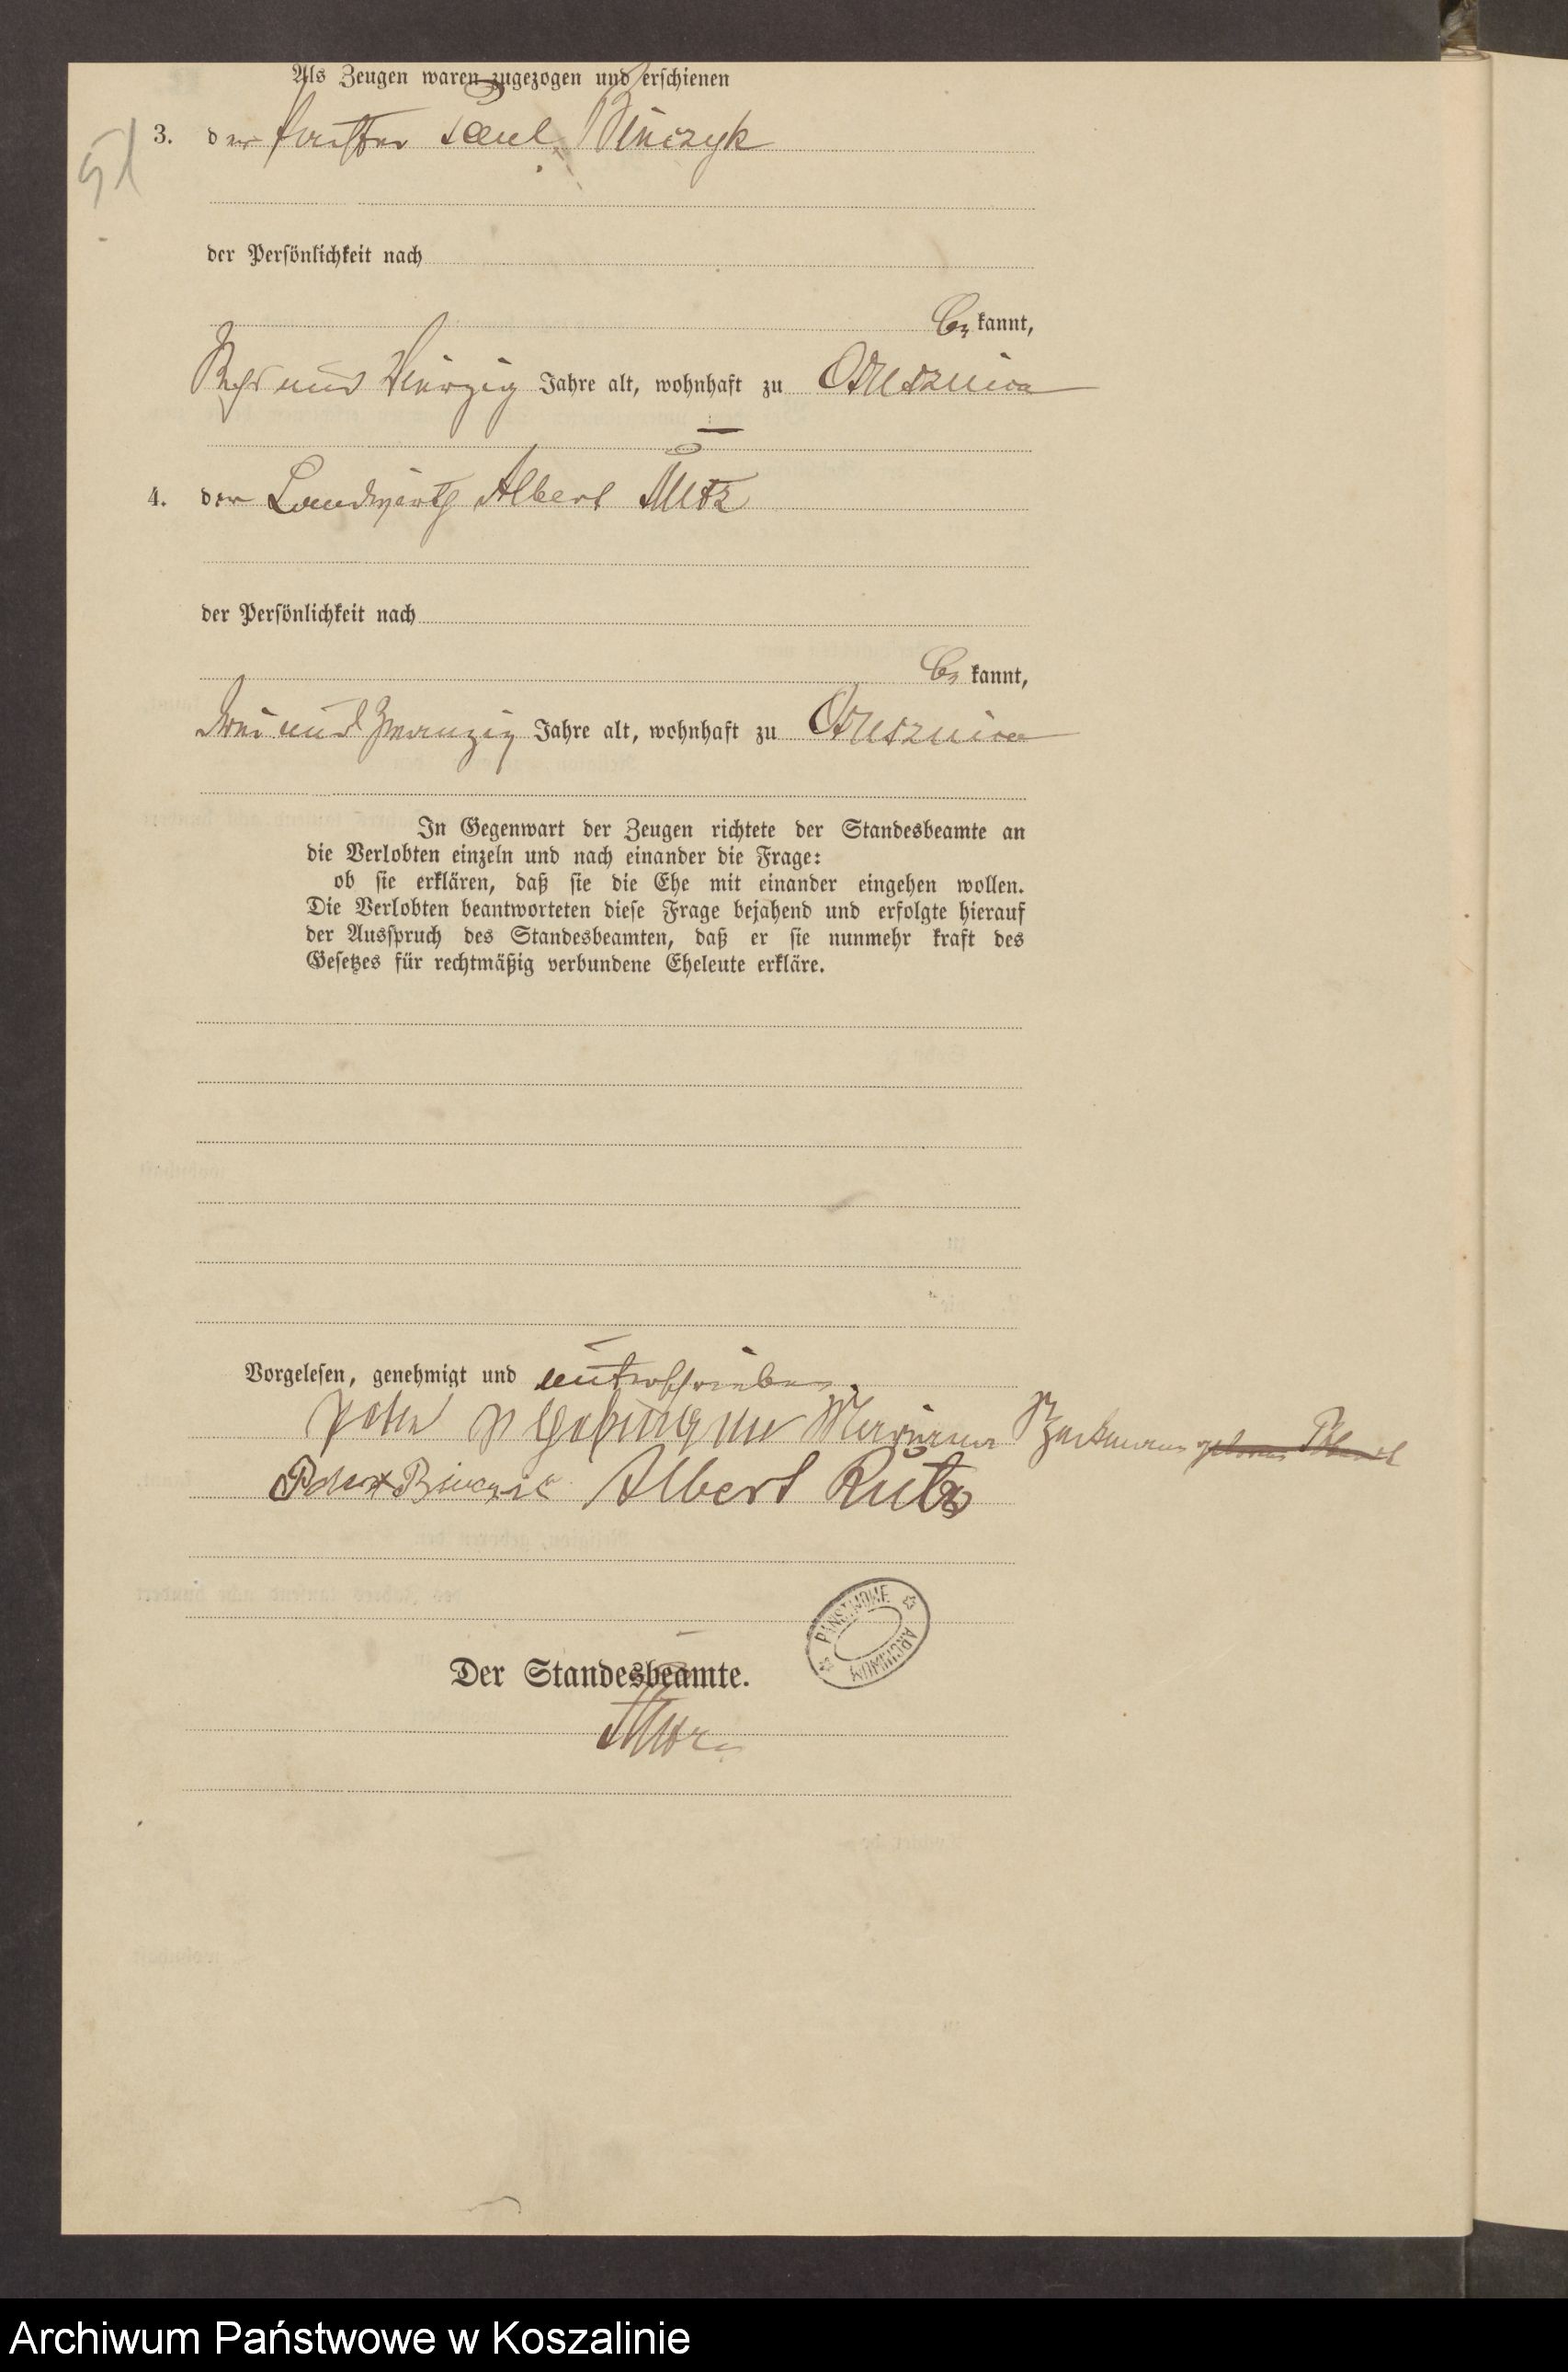 Als Zeugen waren zugezogen und erschienen
51
3. der Paul Binczyk
der Persönlichkeit nach
be kannt,
und Vierzig Jahre alt, wohnhaft zu Ostrusznica
4. der Landwirth Albert Rutz
der Persönlichkeit nach
be kannt,
und zwanzig Jahre alt, wohnhaft zu
In Gegenwart der Zeugen richtete der Standesbeamte an
die Verlobten einzeln und nach einander die Frage:
ob sie erklären, daß sie die Ehe mit einander eingehen wollen.
Die Verlobten beantworteten diese Frage bejahend und erfolgte hierauf
der Ausspruch des Standesbeamten, daß er sie nunmehr kraft des
Gesetzes für rechtmäßig verbundene Eheleute erkläre.
Vorgelesen, genehmigt und unterschrieben
Marianna
Albert Rutz
PAŃSTWOWE ARCHIWUM
Der Standesbeamte.
Rutz
Archiwum Państwowe w Koszalinie